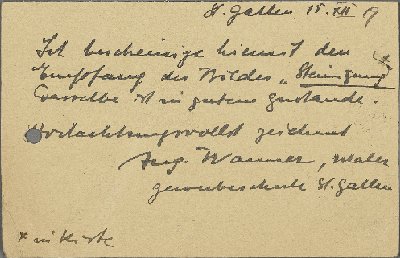 St. Gallen 15. XII 19
Ich bescheinige hiemit den
Empfang des Bildes „Steinigung" *
Dasselbe ist in gutem Zustande.
Hochachtungsvollst zeichnet
Aug. Wanner, Maler
Gewerbeschule St. Gallen
* in Kiste